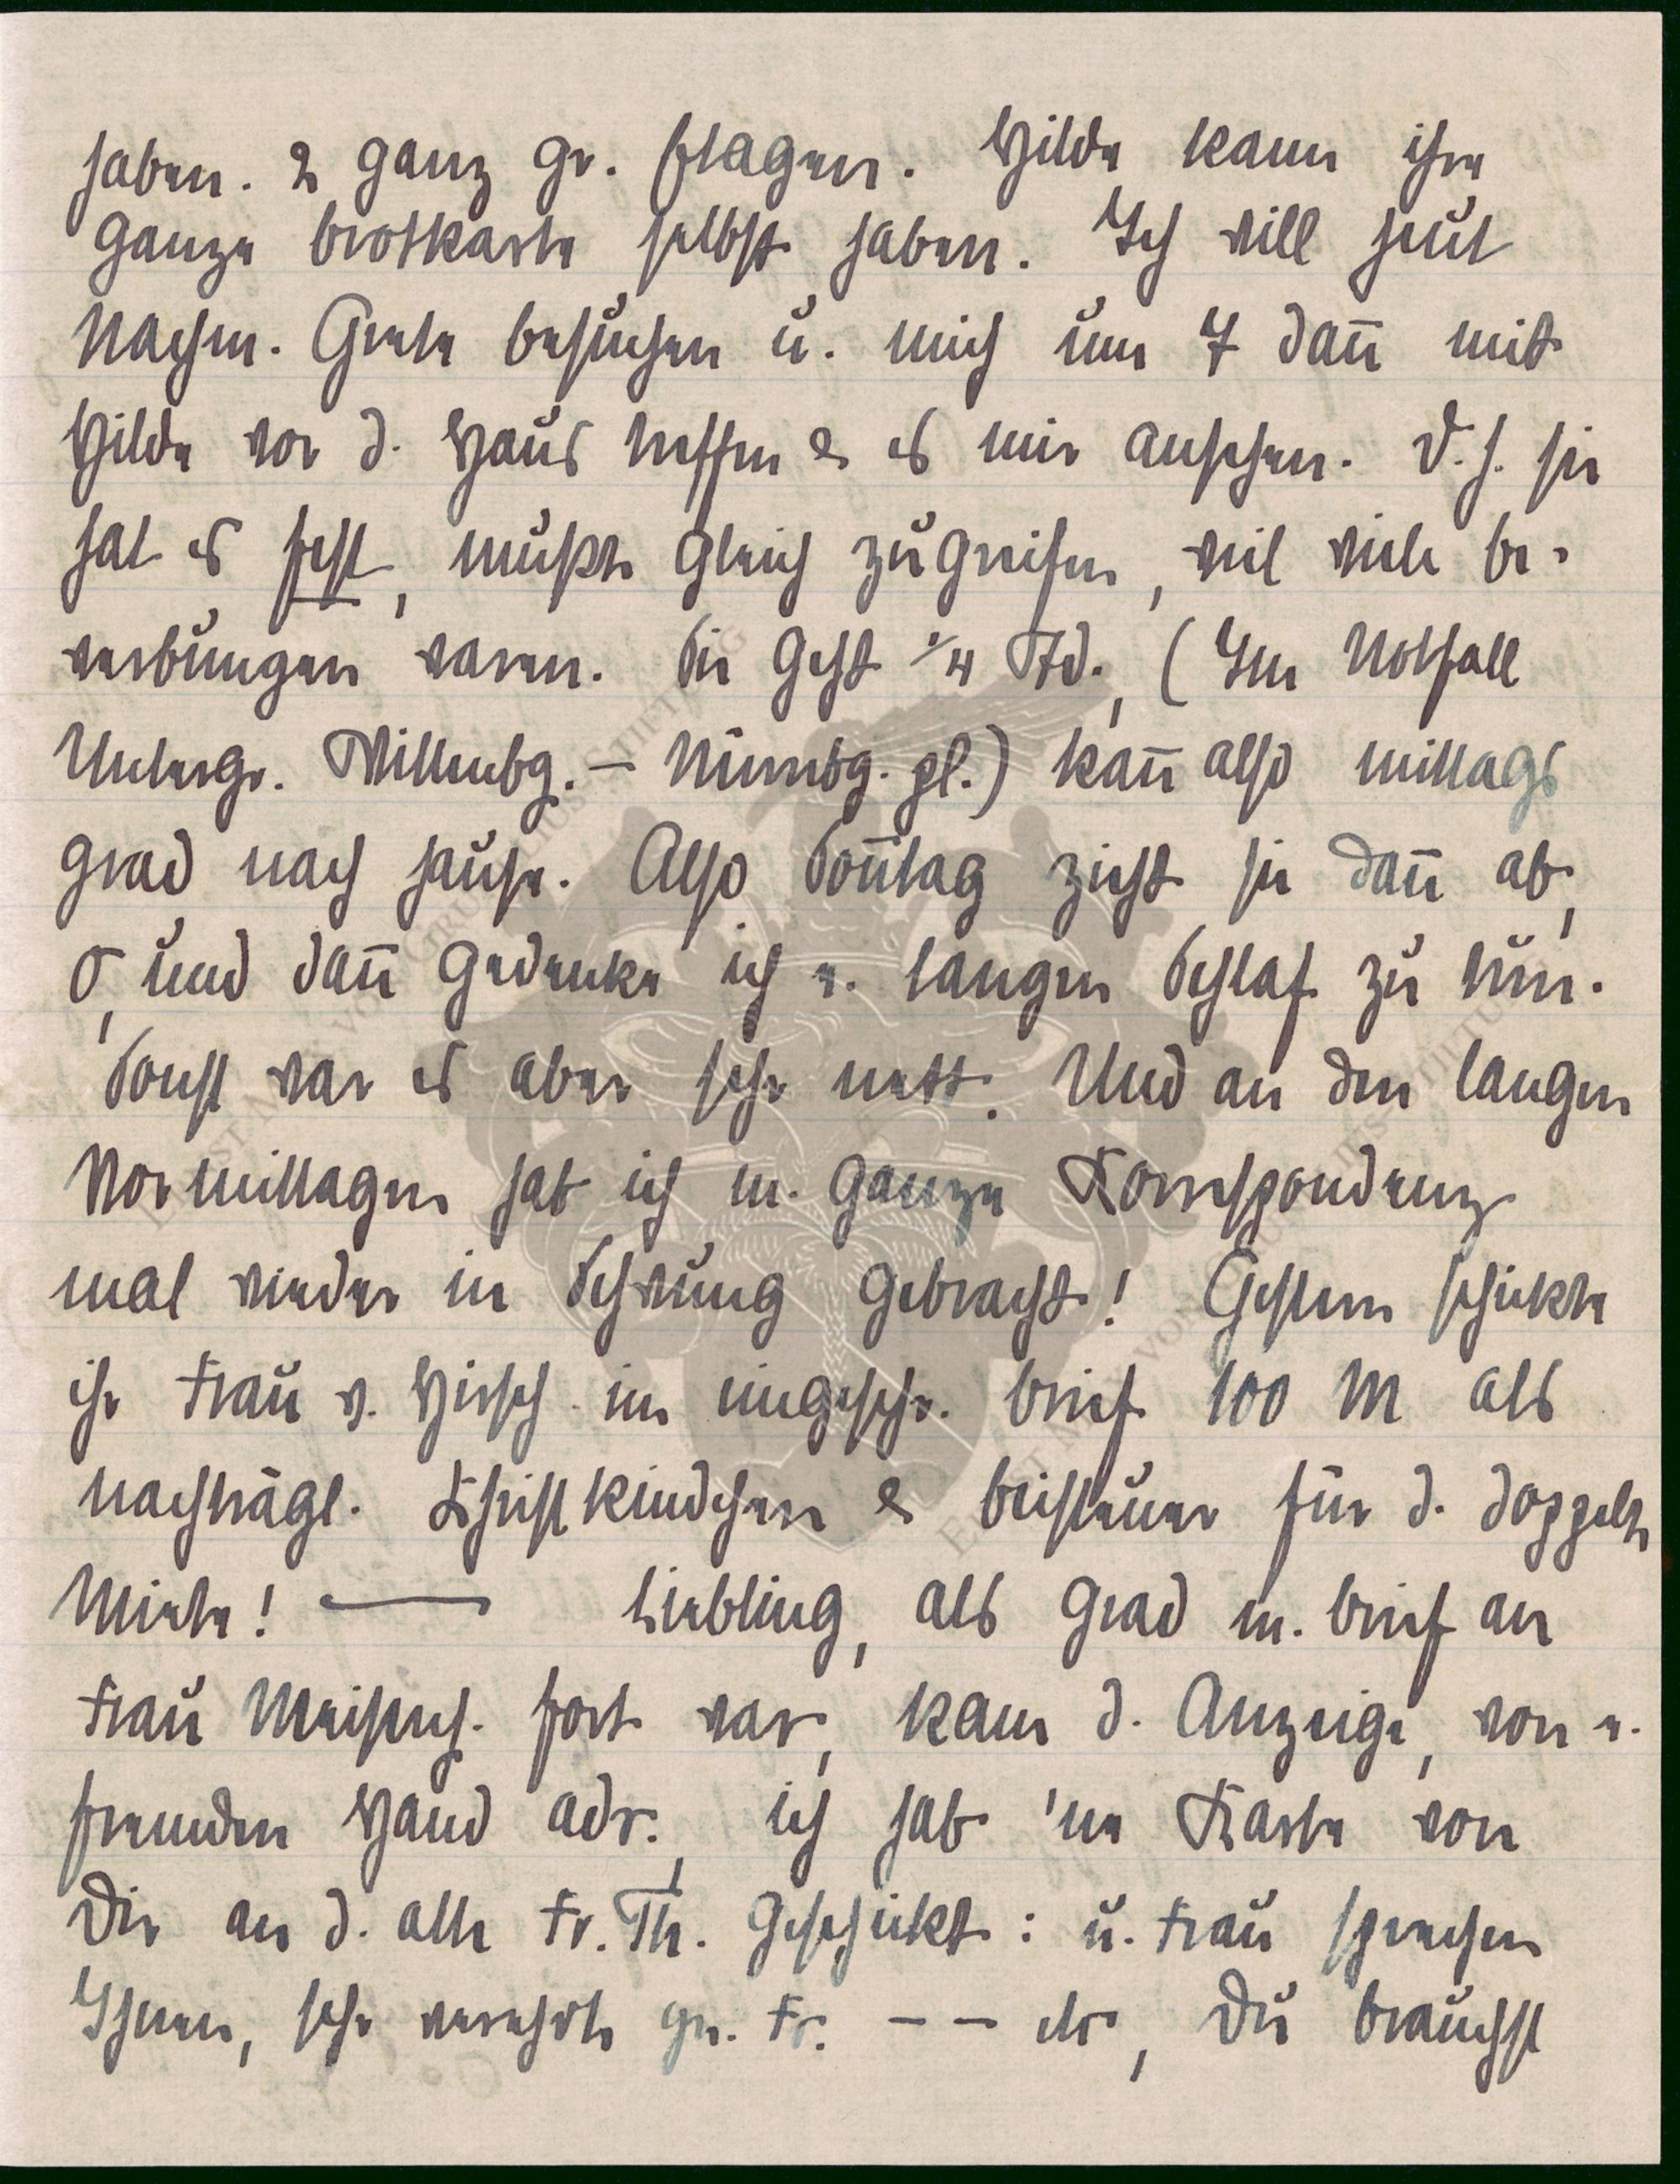 haben. 2 ganz gr. Etagen. Hilde kann ihre
ganze Brotkarte selbst haben. Ich will heut
Nachm. Grete besuchen u. mich um 7 dan̄ mit
Hilde vor d. Haus treffen & es mir ansehen. D. h. sie
hat es fest, mußte gleich zugreifen, weil viele Be-
werbungen waren. Sie geht ¼ Std., (Im Notfall
Untergr. Wittenbg. – Nürnbg. pl.) kan̄ also mittags
grad nach hause. Also Son̄tag zieht sie dan̄ ab,
O, und dan̄ gedenke ich e. langen Schlaf zu tun.
Sonst war es aber sehr nett. Und an den langen
Vormittagen hab ich m. ganze Korrespondenz
mal wieder in Schwung gebracht! Gestern schickte
ihr Frau v. Hirsch im eingeschr. Brief 100 M als
nachträgl. Christkindchen & Beisteuer für d. doppelte
Miete! — Liebling, als grad m. Brief an
Frau fort war, kam d. Anzeige, von e.
fremden Hand adr., ich hab 'ne Karte von
Dir an d. alte Fr. Th. geschickt: u. Frau sprechen
Ihnen, sehr verehrte gn. Fr. – – etc, Du brauchst